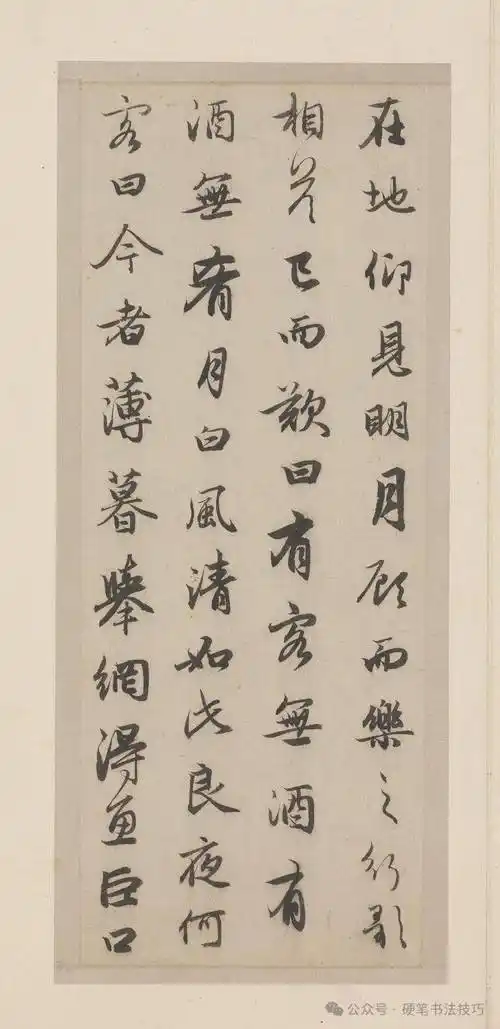 在地仰見明月顧而樂之行歌
相答已而歎曰有客無酒有
酒無肴月白風清如此良夜何
客曰今者薄暮舉網得魚巨口
公众号 · 硬笔书法技巧